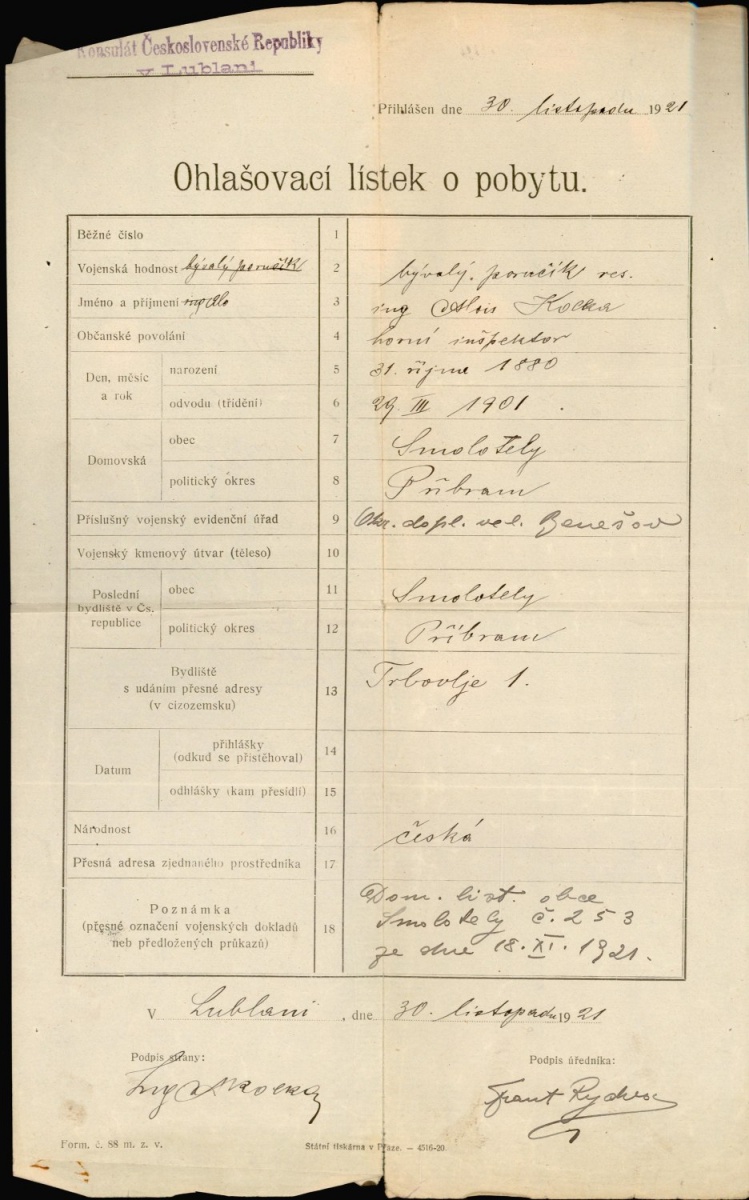 Konsulát Československé Republiky
v Lublani
Přihlášen dne 30. listopadu 1921
Ohlašovací lístek o pobytu.
Běžné číslo 1
Vojenská hodnost bývalý poručík 2 bývalý. poručík res.
Jméno a příjmení ing Alo 3 ing Alois Kocka
Občanské povolání 4 horní inšpektor
Den, měsíc a rok narození 5 31. října 1880
odvodu (třídění) 6 29. III 1901.
Domovská obec 7 Smolotely
politický okres 8 Příbram
Příslušný vojenský evidenční úřad 9 Okr. dopl. vel. Benešov
Vojenský kmenový útvar (těleso) 10
Poslední bydliště v Čs. republice obec 11 Smolotely
politický okres 12 Příbram
Bydliště
s udáním přesné adresy 13 Trbovlje 1.
(v cizozemsku)
Datum přihlášky (odkud se přistěhoval) 14
odhlášky (kam přesídlí) 15
Národnost 16 česká
Přesná adresa zjednaného prostředníka 17
Poznámka Dom. list. obce
(přesné označení vojenských dokladů 18 Smolotely č. 253
neb předložených průkazů) ze dne 18. XI. 1921.
V Lublani, dne 30. listopadu 1921
Podpis strany: Podpis úředníka:
Ing A Kocka Frant
Form. č. 88 m. z. v. Státní tiskárna v Praze. — 4516-20.